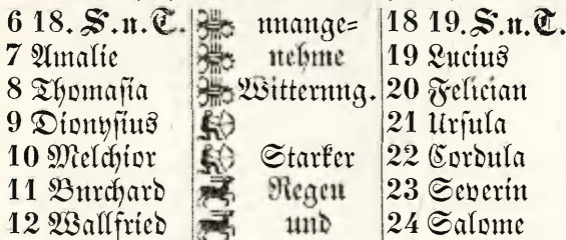 6 18. S. n. T. unange= 18 19. S. n. T.
7 Amalie nehme 19 Lucius
8 Thomasia Witterung. 20 Felician
9 Dionysius 21 Ursula
10 Melchior Starker 22 Cordula
11 Burchard Regen 23 Severin
12 Wallfried und 24 Salome